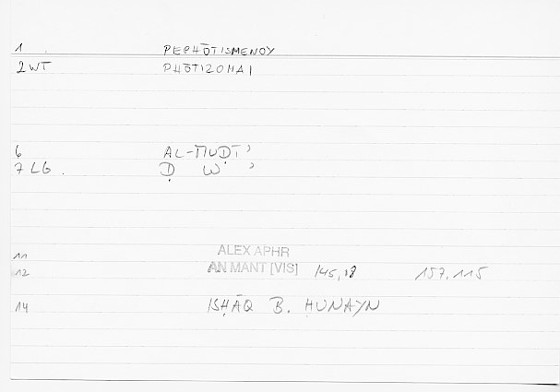 1 PEPHŌTISMENOY
2 WT PHŌTIZOMAI
6 AL-MUḌĪʾ
7 LG. Ḍ W ʾ
11 ALEX APHR
12 AN MANT [VIS] 145,18 157,115
14 ISḤĀQ B. ḤUNAYN